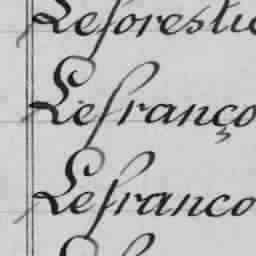 Leforestie
Lefranço
Lefranco